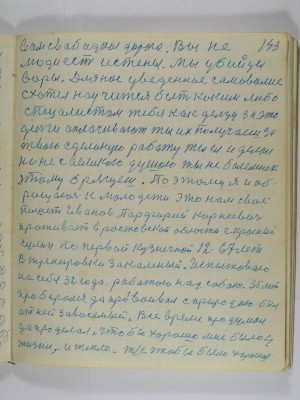 Вам свободная дорога. Вы не 143
люди ест истены. Мы убийцы
воры. Дляное уведенное самоволие
схотел научится быт каким либо
специалистам тебя как делец за это
денги оплачивают ты их получаеш за
твою сделоную работу ты ей и делай
но не с великою душою ты не болелник
этому врящем. Поэтому я и об-
ращаюся к молодежи это нам свое
пишет Иванов Парфирий Корнеевич
проживает в ростовская области г. красный
сулин по первой Кузнечной 12 67 лет
В тренировки Закаленый. Испытовано
на себя 32 года. работаю над собою. 35 лет
про береме да про воивал с природою был
от ней зависемый. Все время продумал
да проделал, чтобы хорошо мне было в
жизни, и тепло. Т/е чтобы было хорошо